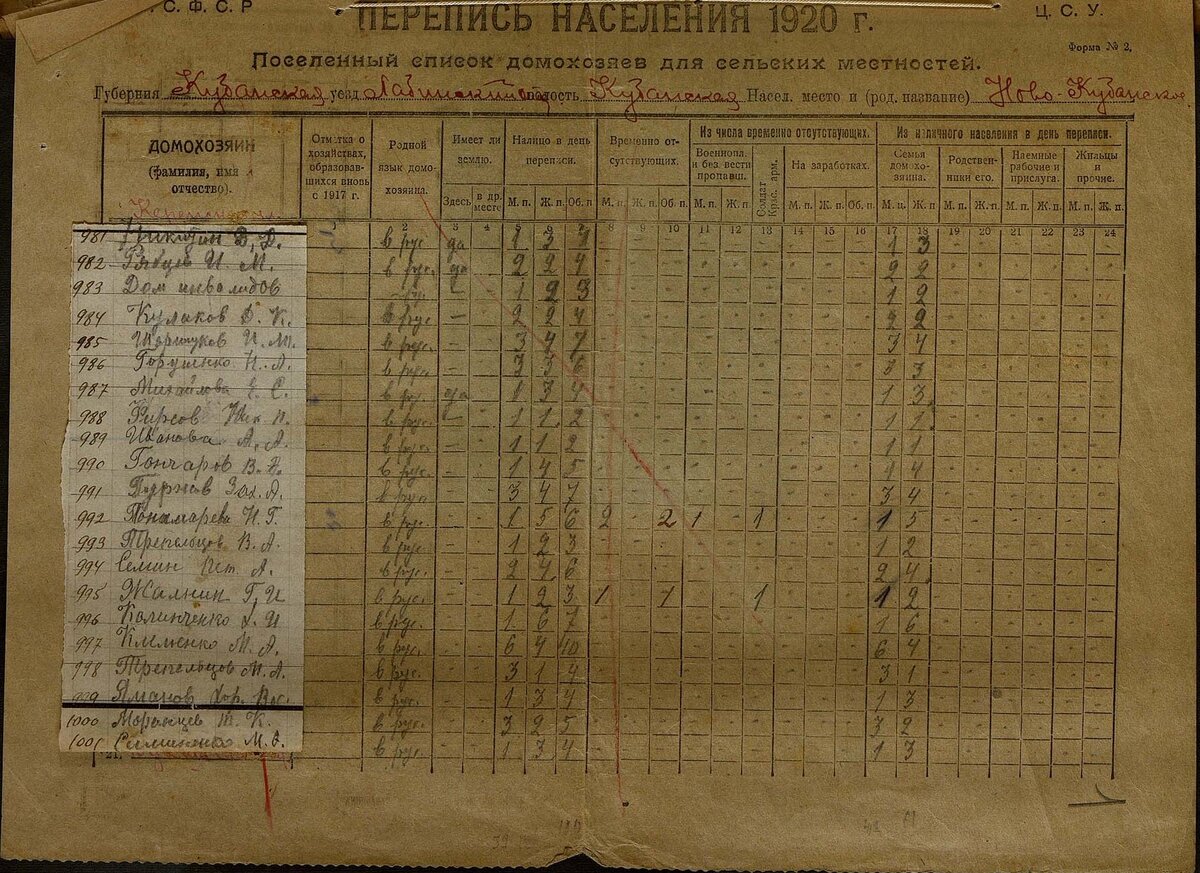 С. Ф. С. Р
Ц. С. У.
ПЕРЕПИСЬ НАСЕЛЕНИЯ 1920 г.
Форма № 2.
Поселенный список домохозяев для сельских местностей.
Губерния Кубанская уезд Лабинский волость Кубанская Насел. место и (род. название) Ново-Кубанское
ДОМОХОЗЯИН (фамилия, имя отчество).
Отметка о хозяйствах, образовавшихся вновь с 1917 г.
Родной язык домохозяина.
Имеет ли землю.
Здесь в др. месте
Налицо в день переписи.
М. п. Ж. п. Об. п
Временно отсутствующих.
М. п. Ж. п. Об. п
Из числа временно отсутствующих.
Военнопл. и без вести пропавш.
М. п. Ж. п.
Солдат Крас. арм.
На заработках.
М. п. Ж. п. Об. п.
Из наличного населения в день переписи.
Семья домохозяина.
М. п. Ж. п
Родственники его.
М. п. Ж. п.
Наемные рабочие и прислуга.
М. п. Ж. п.
Жильцы и прочие.
М. п. Ж. п.
2 3 4 5 6 7 8 9 10 11 12 13 14 15 16 17 18 19 20 21 22 23 24
981 Никитин В. Д. в рус да - 1 3 4 1 3
982 Рябцев И. М. в рус. да - 2 2 4 2 2
983 Дом инвалидов - 1 2 3 1 2
984 Кулаков Д. К. в рус - 2 2 4 2 2
985 И. М. в рус. - 3 4 7 3 4
986 Горущенко Н. А. в рус - 3 3 6 3 3
987 Михайлова Е. С. в рус. да - 1 3 4 1 3
988 Фирсов Ник. П. в рус - 1 1 2 1 1
989 Иванова А. А. в рус. - 1 1 2 1 1
990 Гончаров В. Е. в рус - 1 4 5 4
991 Зах. А. в рус - 3 4 7 3 4
992 Пономарева Н. Г. в рус - 1 5 6 2 - 2 1 - 1 1 5
993 Трепельцов В. А. в рус. - 1 2 3 1 2
994 Семин А. в рус. - 2 4 6 2 4
995 Жалнин Г. И в рус. - 1 2 3 1 - 1 - - 1 1 2
996 Калинченко И в рус. - 1 6 7 1 6
997 М. А. в рус. - 6 4 10 6 4
998 Трепельцов М. А. в рус. - 3 1 4 3 1
999 Яманов Хар. в рус. - 1 3 4 1 3
1000 К. в рус. - 3 2 5 3 2
1001 Симиненко М. С. в рус. - 1 3 4 1 3
21.